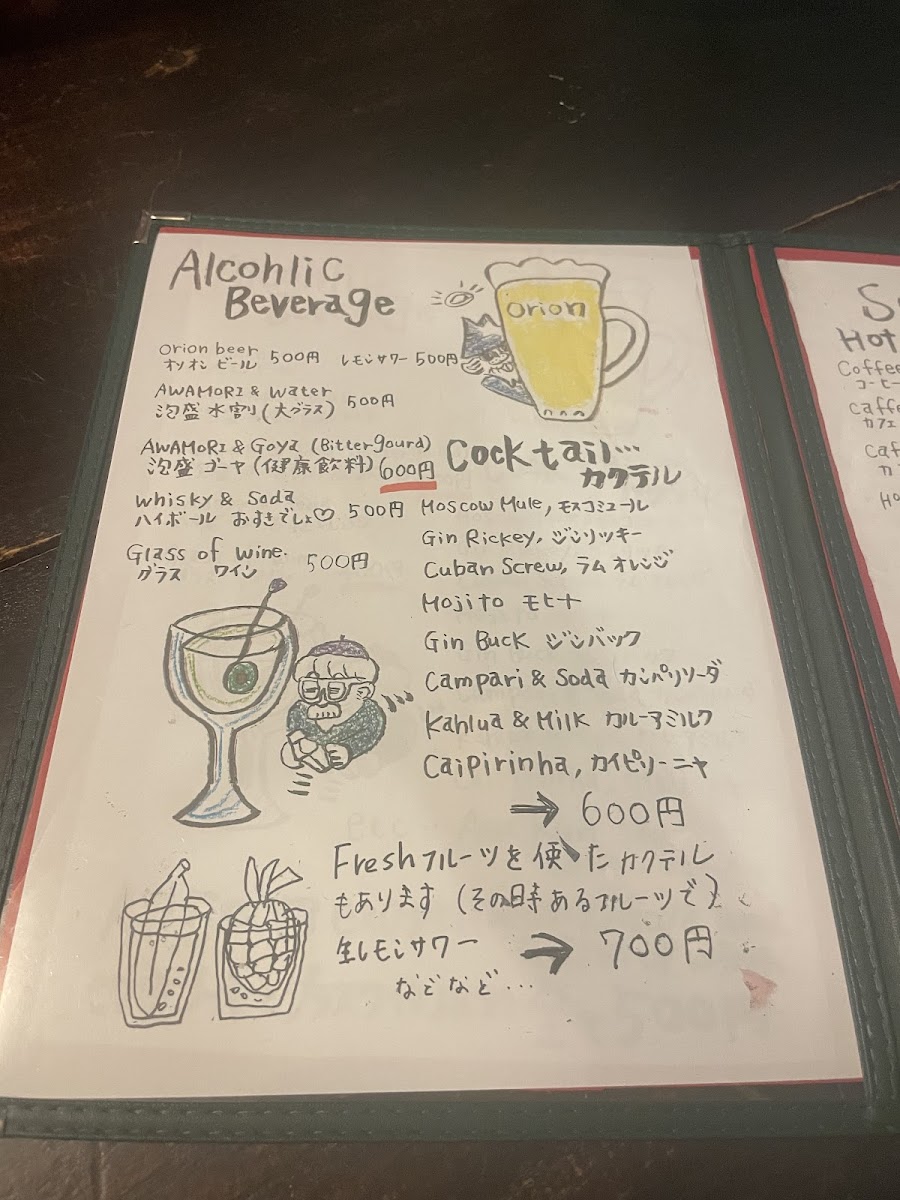 Alcohlic
Beverage
Orion
Orion beer
オリオン ビール 500円 レモンサワー 500円
AWAMORI & Water
泡盛 水割り (大グラス) 500円
AWAMORI & Goya (Bittergourd)
泡盛 ゴーヤ (健康飲料) 600円
Whisky & Soda
ハイボール おすきでしょ♡ 500円
Glass of wine.
グラス ワイン 500円
Cocktail...
カクテル
Moscow Mule, モスコミュール
Gin Rickey, ジンリッキー
Cuban Screw, ラム オレンジ
Mojito モヒート
Gin Buck ジンバック
Campari & Soda カンパリソーダ
Kahlua & Milk カルーアミルク
Caipirinha, カイピリーニャ
→ 600円
Freshフルーツを使ったカクテル
もあります (その時あるフルーツで)
生レモンサワー → 700円
などなど...
Hot
Coffee
コーヒー
Caffe
カフェ